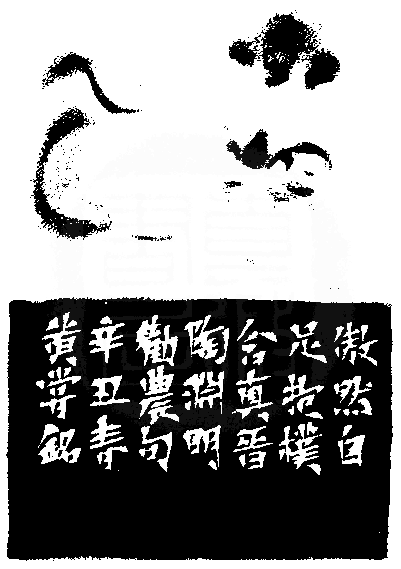 傲然自
足抱樸
含真晉
陶淵明
勸農句
辛丑
黃銘